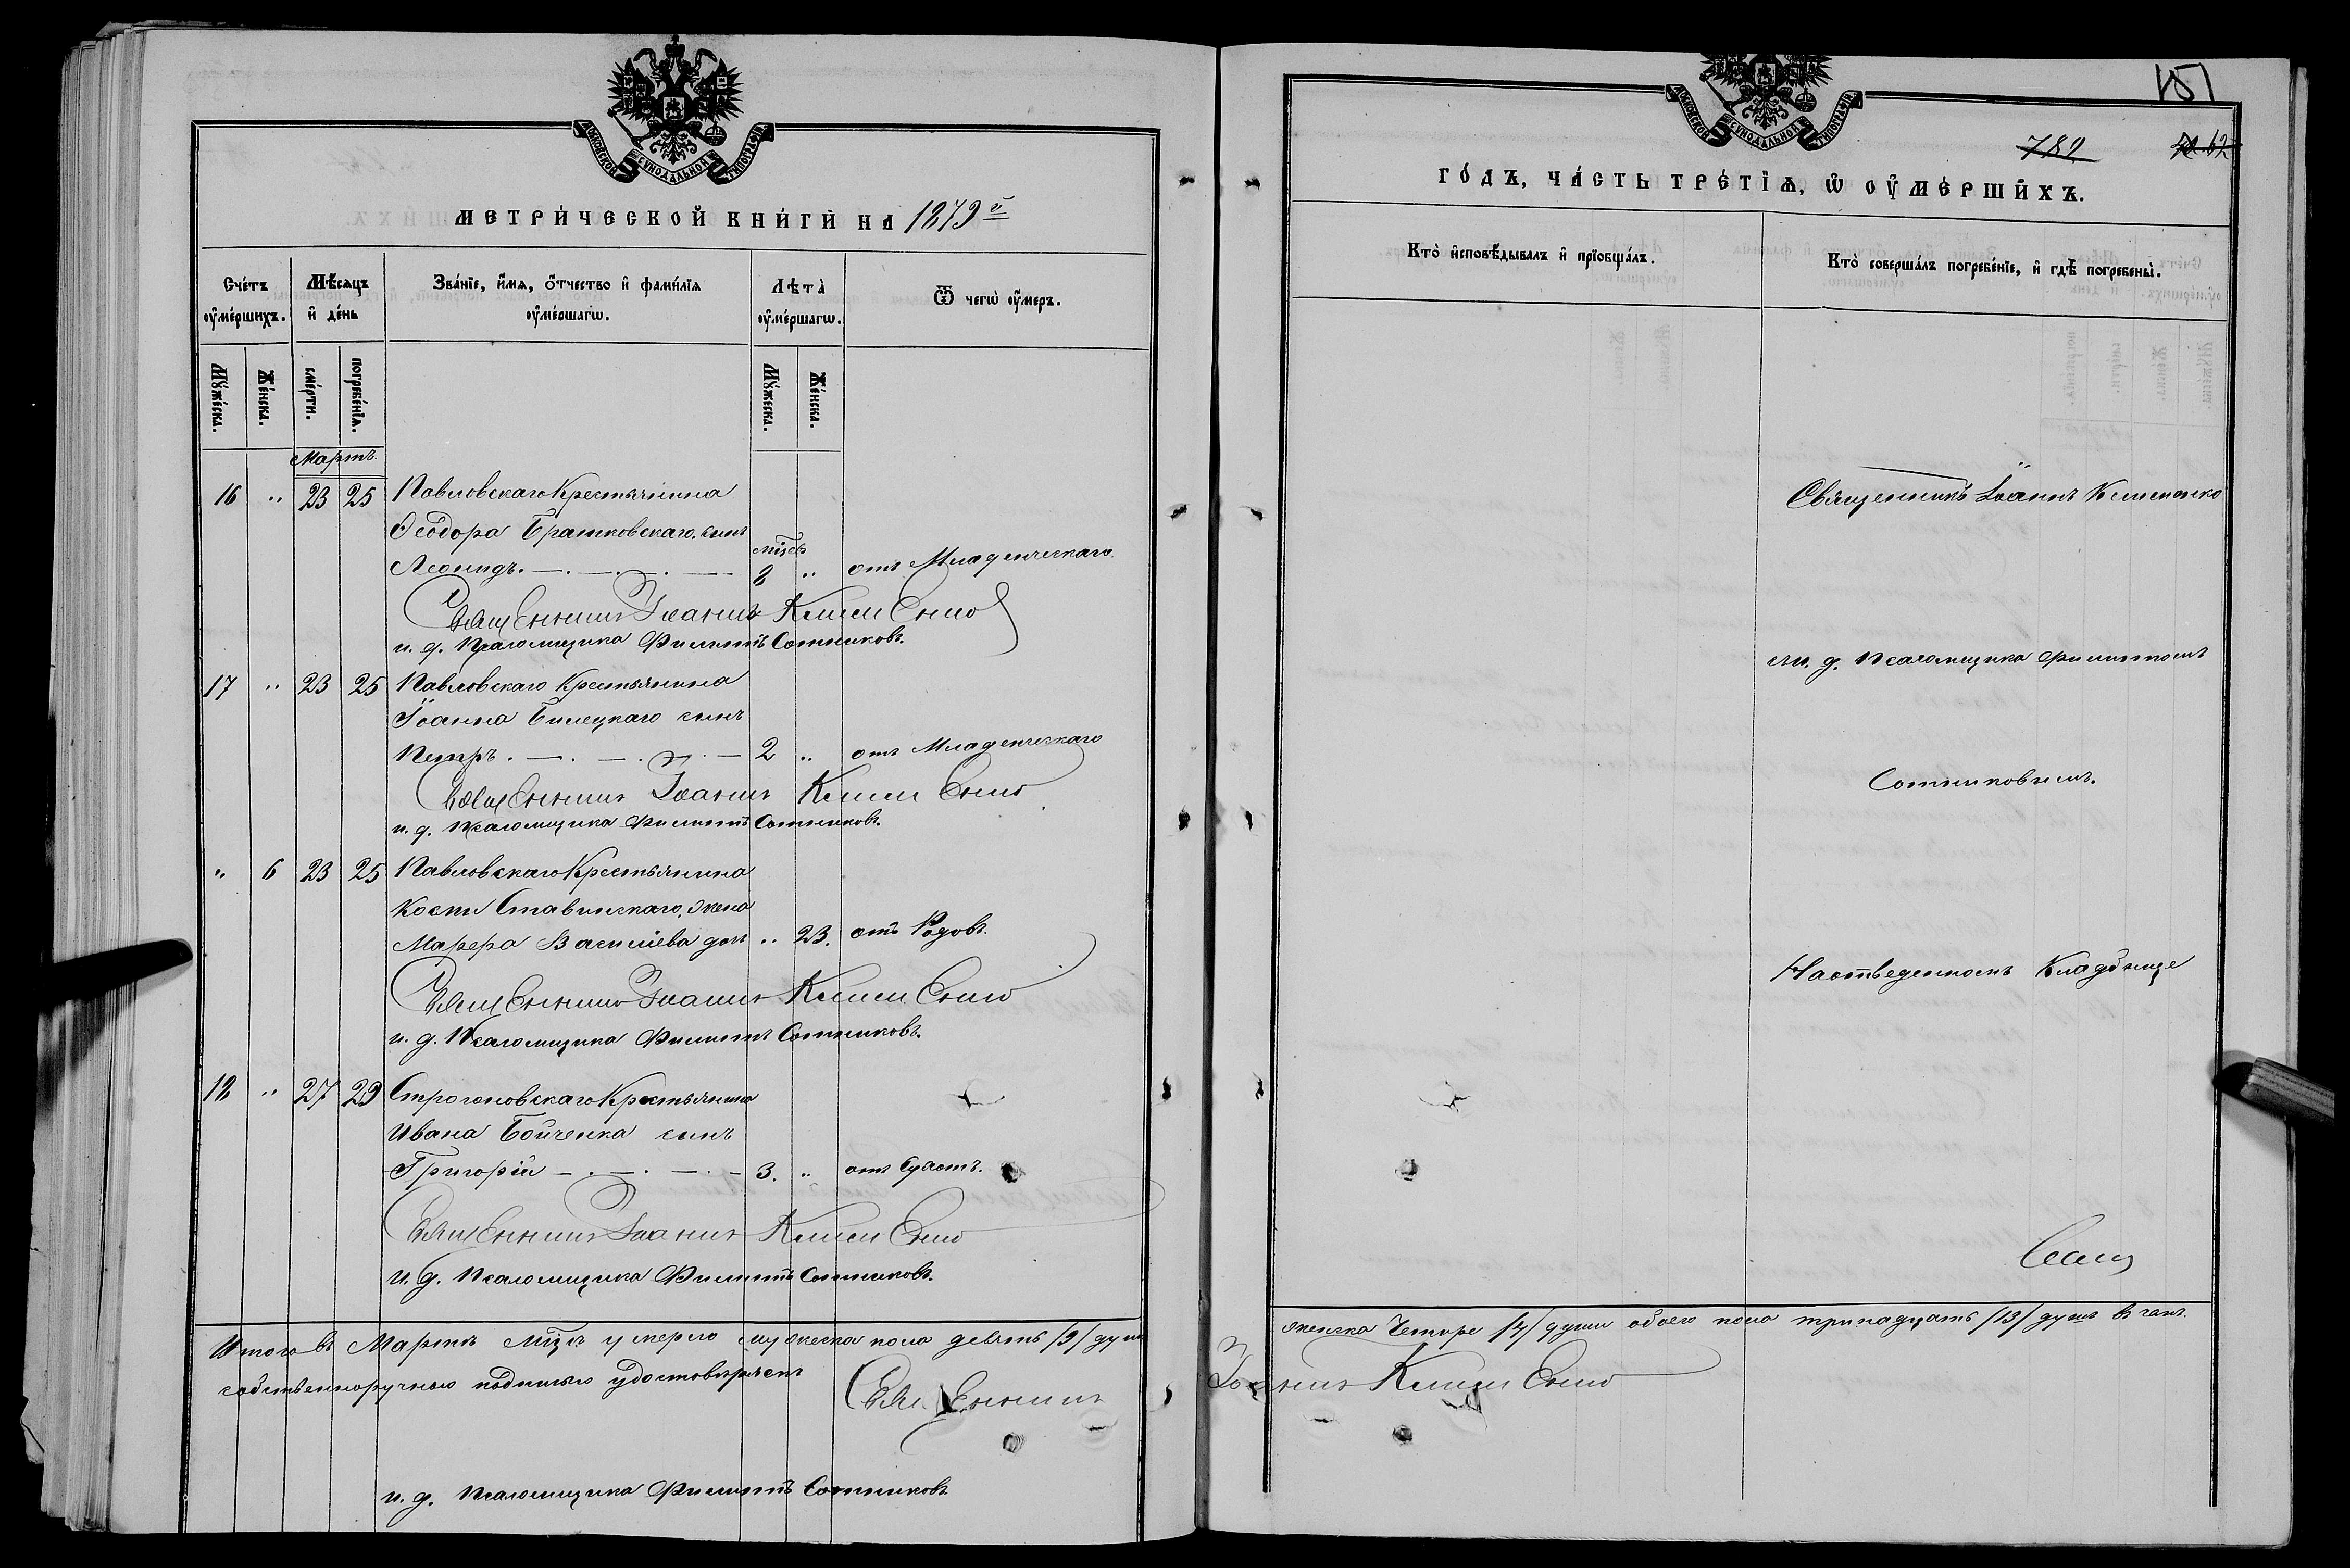 МОСКОВСКОЙ СѴНОДАЛЬНОЙ ТИПОГРАФІИ
МЕТРИ́ЧЕСКОЙ КНИ́ГИ НА 1879й
Сче́тъ ᲂу҆ме́ршихъ.
Мѣ́сѧцъ и҆ де́нь
Зва́нїе, и҆́мѧ, ѻ҆́тчество и҆ фами́лїѧ ᲂу҆ме́ршагѡ.
Лѣта̀ ᲂу҆ме́ршагѡ.
Ѿ чегѡ̀ ᲂу҆́меръ.
Мꙋ́жеска.
Же́нска.
сме́рти.
погребе́нїѧ.
Мꙋ́жеска.
Же́нска.
Мартъ.
16 " 23 25 Павловскаго Крестьянина
Ѳеодора Братковскаго, сынъ
Леонидъ. мѣсяц. 8 " отъ Младенческаго.
Священникъ Іоаннъ Клименко
и. д. Псаломщика Филиппъ Сотниковъ.
17 " 23 25 Павловскаго Крестьянина
Іоанна Билецкаго сынъ
Петръ. 2 " отъ Младенческаго
Священникъ Іоаннъ Клименко
и. д. Псаломщика Филиппъ Сотниковъ.
" 6 23 25 Павловскаго Крестьянина
Ставинскаго, жена
Василіева доч " 23. отъ Родовъ.
Священникъ Іоаннъ Клименко
и. д. Псаломщика Филиппъ Сотниковъ.
18 " 27 29 Строгоновскаго Крестьянина
Ивана Бойченка сынъ
Григорій 3. "
Священникъ Іоаннъ Клименко
и. д. Псаломщика Филиппъ Сотниковъ.
Итого въ Мартѣ мѣсяцѣ умерло мужеска пола девять /9/ душ
собственноручною подписью удостовѣряемъ
Священникъ
и. д. Псаломщика Филиппъ Сотниковъ
151
782
МОСКОВСКОЙ СѴНОДАЛЬНОЙ ТИПОГРАФІИ
ГО́ДЪ, ЧА́СТЬ ТРЕ́ТІѦ, Ѡ҆ ОУ҆МЕ́РШИХЪ.
Кто̀ и҆сповѣ́дывалъ и҆ прїобща́лъ.
Кто̀ соверша́лъ погребе́нїе, и҆ гдѣ̀ погребены̀.
Священникъ Іоаннъ Клименко
съ и. д. Псаломщика Филиппомъ
Сотниковымъ.
На отведенномъ Кладбище
женска Четыре /4/ души обоего пола тринадцать /13/ душъ в чемъ
Іоаннъ Клименко